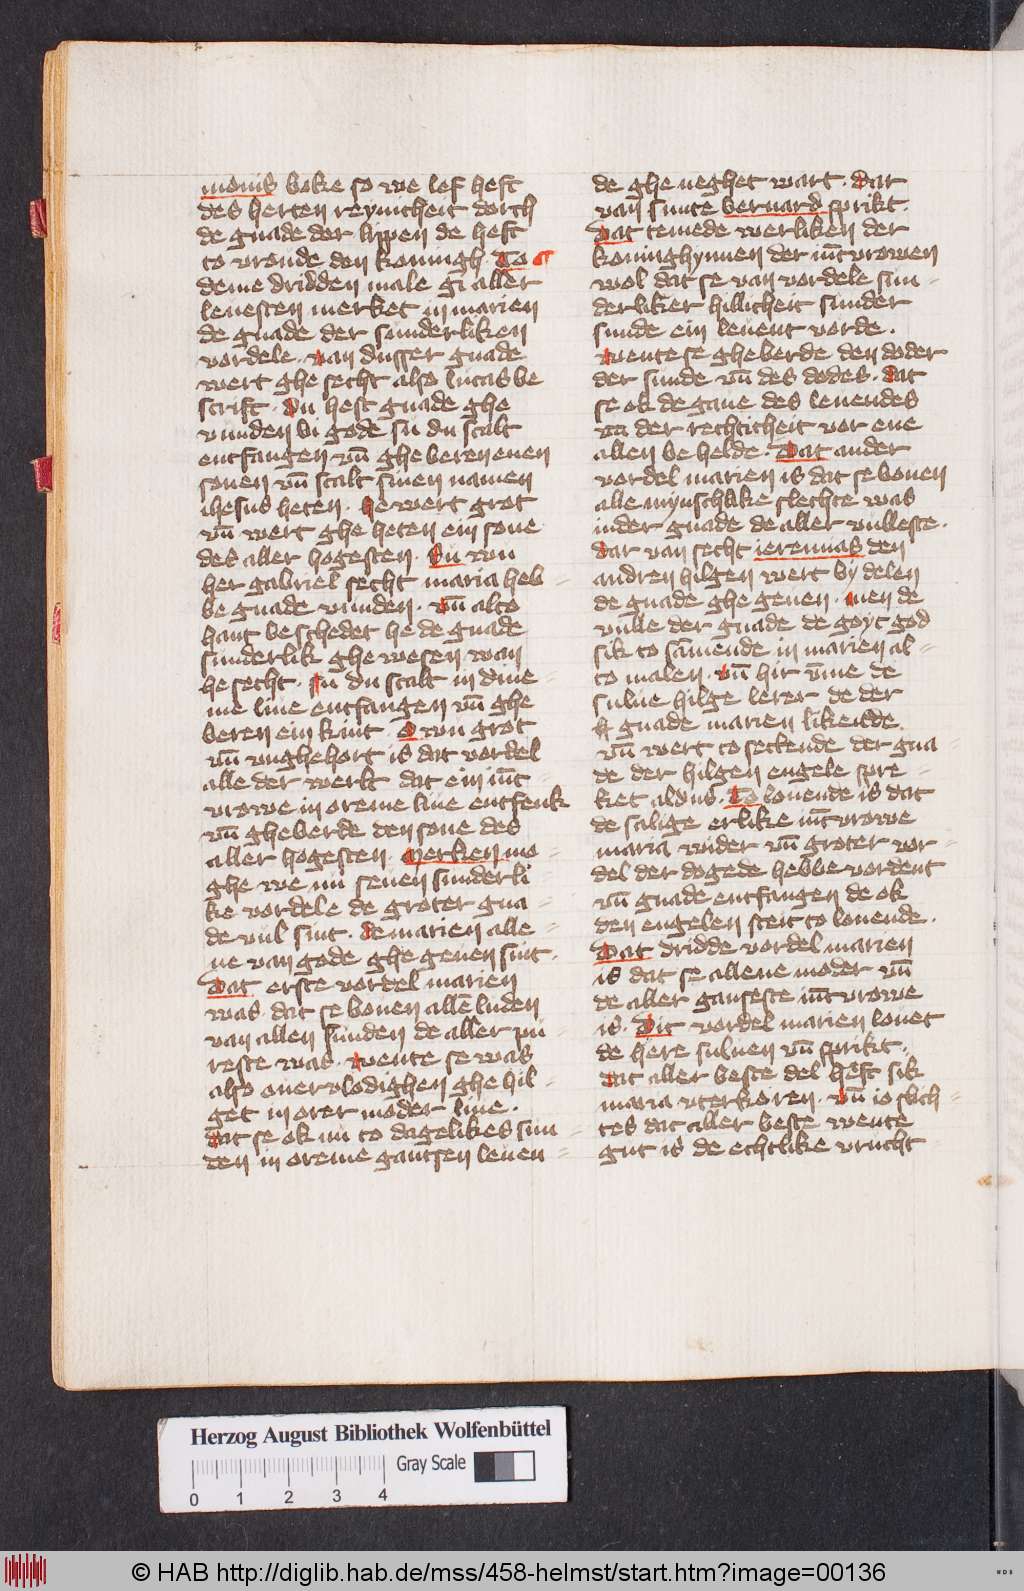 monis boke so we lef heft
des herten reynicheit dorch
de gnade der lippen de heft
to vronde den koningh. To
deme dridden male gi aller
leuesten merket in marien
de gnade der sunderliken
vordele. van dusser gnade
wert ghe secht also lucas be
scrift. Du hest gnade ghe
vunden bi gode su du scalt
entfangen vn̄ ghe beren enen
sonen vn̄ scalt sinen namen
ihesus heten. he wert grot
vn̄ wert ghe heten ein sone
des aller hogesten. Su wu
her gabriel secht maria heb
be gnade vunden. vn̄ alto
hant beschedet he de gnade
sunderlik ghe wesen. wan
he secht. su du scalt in dine
me liue entfangen vn̄ ghe
beren ein kint. O wu grot
vn̄ vnghehort is dat vordel
alle der werlt dat ein iūc
vrowe in oreme liue entfenk
vn̄ gheberde den sone des
aller hogesten. Merken mo
ghe we nu seuen sunderli
ke vordele de groter gna
de vul sint. de marien alle
ne van gode ghe geuen sint.
Dat erste vordel marien
was. dat se bouen allē luden
van allen sunden de aller pu
reste was. wente se was
also ouervlodighen ghe hil
get in orer moder liue.
dat se ok nu to dagelikes sun
den in oreme gantsen leuen
de ghe neghet wart. dar
van suncte bernard sprikt.
Dat temede werliken der
koninghynnen der iūcvrowen
wol dat se van vordele sun
derliker hillicheit sunder
sunde ein leuent vorde.
wente se gheberde den doder
der sunde vn̄ des dodes. dat
se ok de gaue des leuendes
vn̄ der rechticheit vor ene
allen be helde. Dat ander
vordel marien is dat se bouen
alle mynschlike slechte was
in der gnade de aller vulleste.
dar van secht ieremias den
andren hilgen wert by delen
de gnade ghe geuen. men de
vulle der gnade de goyt god
sik to sāmende in marien al
to malen. vn̄ hir vme de
sulue hilge lerer de der
gnade marien likende
vn̄ wert to settende der gna
de der hilgen engele spre
ket aldus. To louende is dat
de salige erlike iūcvrowe
maria wider vn̄ groter vor
del der dogede hebbe vordent
vn̄ gnade entfangen de ok
den engelen steit to louende.
Dat dridde vordel marien
is dat se allene moder vn̄
de aller ganseste iūcvrowe
is. Dit vordel marien louet
de here suluen vn̄ sprikt.
dat aller beste del heft sik
maria vterkoren. vn̄ io slich
tes dat aller beste wente
gut is de echtlike vrucht
Herzog August Bibliothek Wolfenbüttel
Gray Scale
0 1 2 3 4
© HAB http://diglib.hab.de/mss/458-helmst/start.htm?image=00136